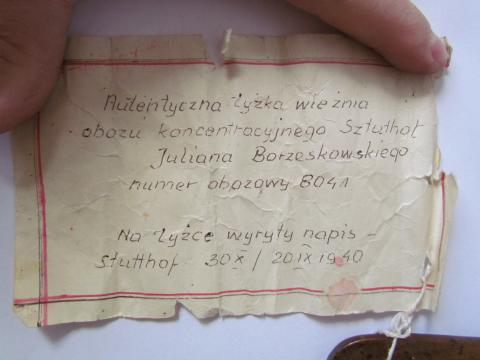 Autentyczna łyżka więźnia
obozu koncentracyjnego Sztuthof
Juliana Borzeskowskiego
numer obozowy 8041
Na łyżce wyryty napis –
Stutthof 30 X / 20 IX 1940